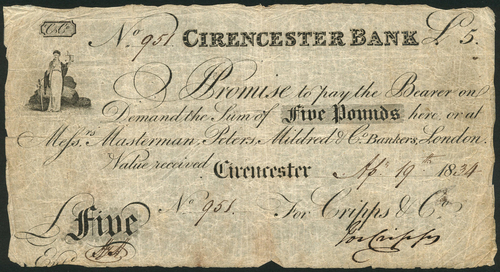 C&Co
No. 951 CIRENCESTER BANK £5.
I Promise to pay the Bearer on
Demand the Sum of Five Pounds here, or at
Messrs. Masterman, Peters, Mildred & Co. Bankers, London.
Value received
Cirencester Apl 19th 1834
No. 951. For Cripps & Co.
£ Five
Jos Cripps
Entd